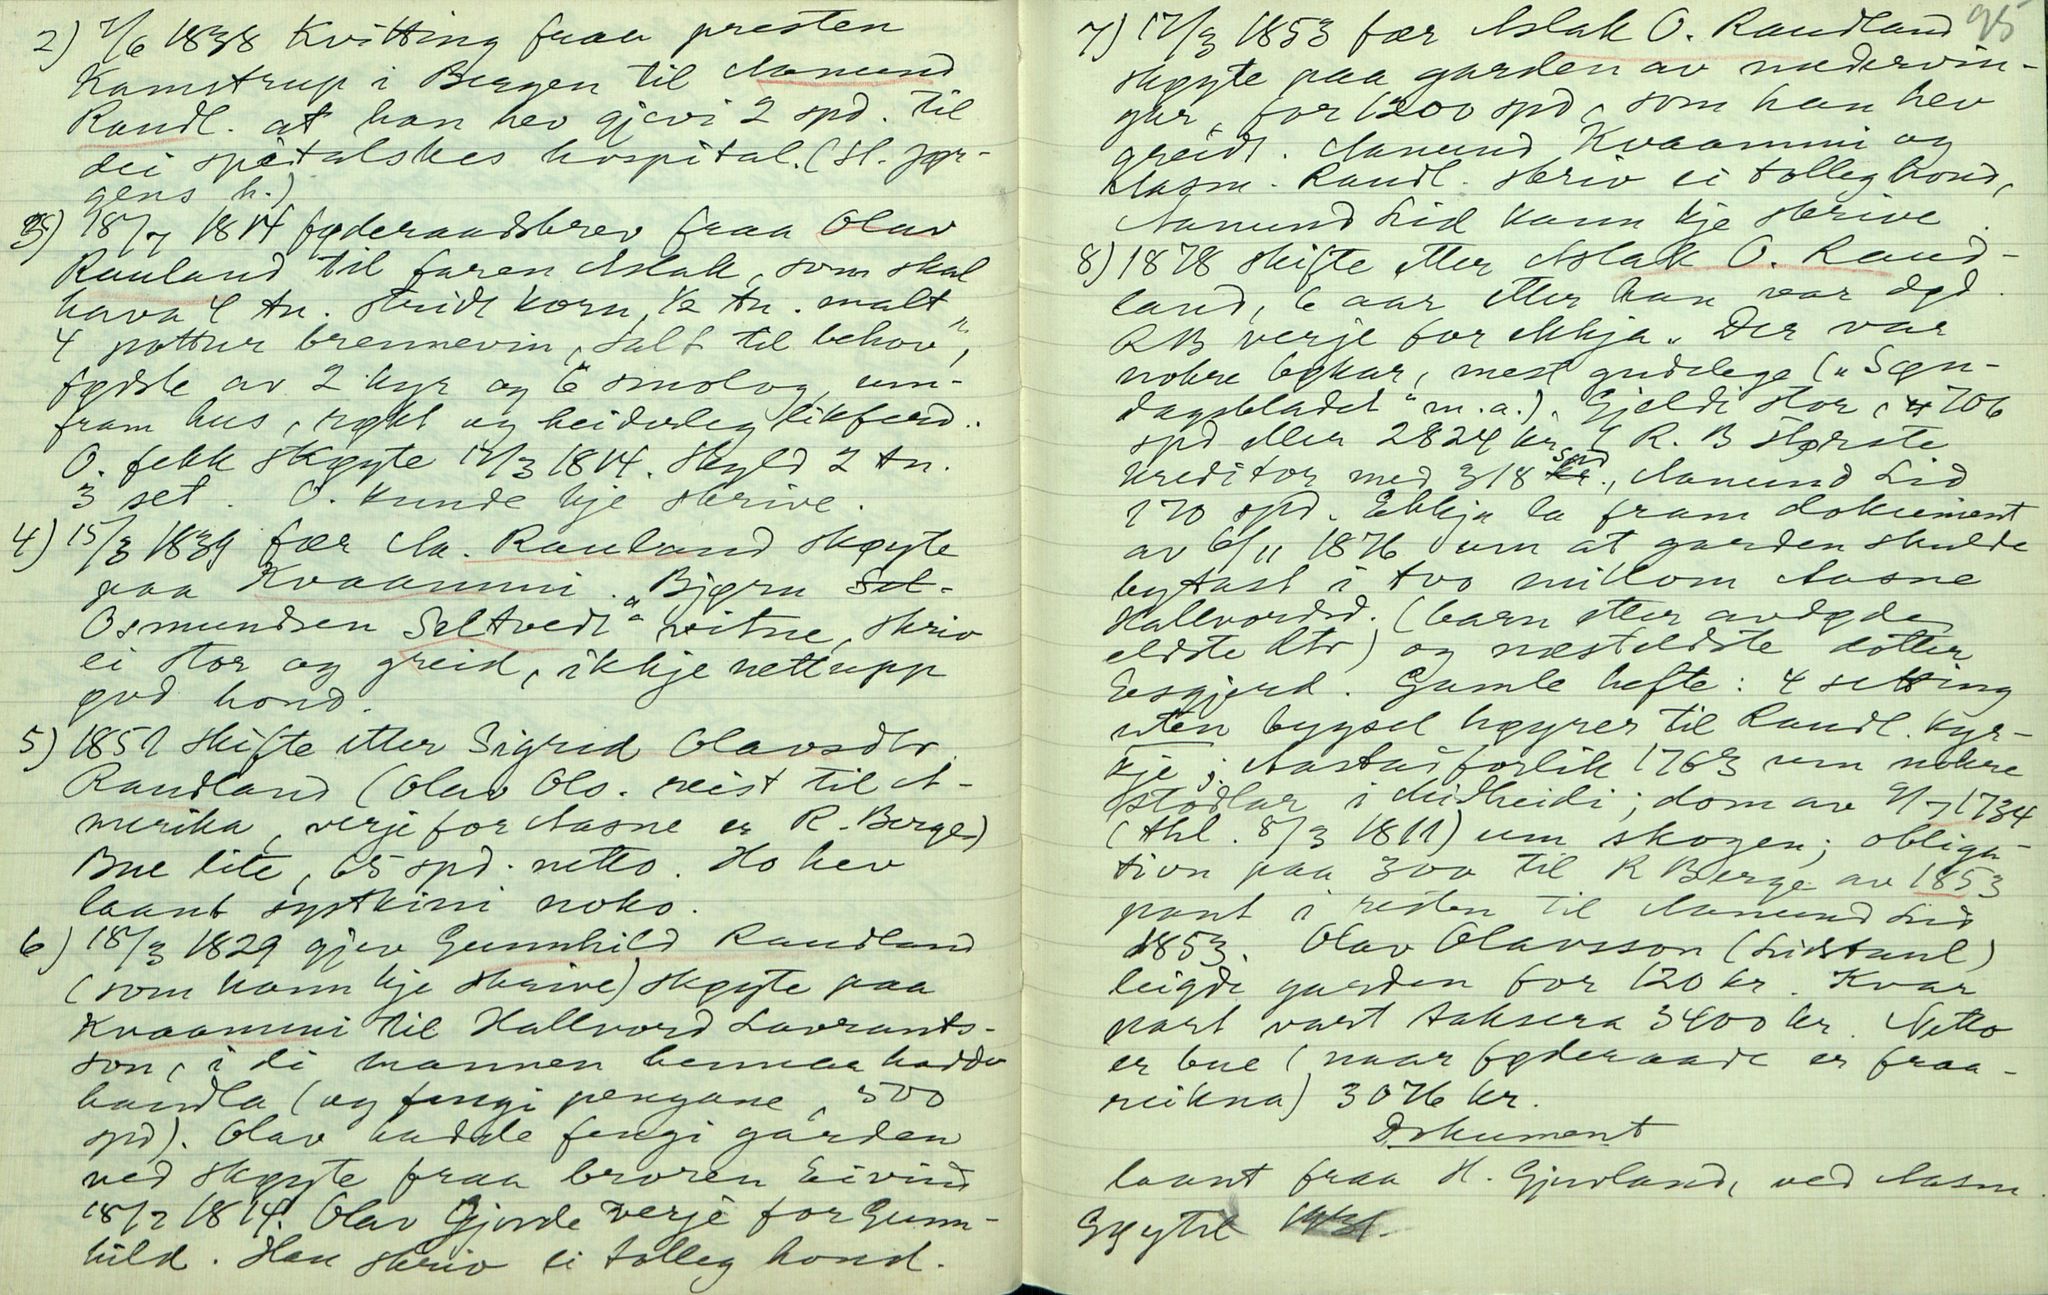 2) 7/6 1838 Kvitting fraa presten
Kamstrup i Bergen til Aamund
Raudl. at han hev gjevi 2 spd. til
dei spitalskes hospital. (St. Jør-
gens h.)
3) 18/7 1814 føderaadsbrev fraa Olav
Rauland til faren Aslak, som skal
hava 4 tn. stridt korn, 1/2 tn. malt
4 pottur brennevin, salt til behov",
fødsle av 2 kyr og 6 smolog, um-
fram hus, røkt og heiderleg likferd.
O. fekk skøyte 12/3 1814. Skyld 2 tn.
3 set. O. kunde kje skrive.
4) 15/3 1839 fær Aa. Rauland skøyte
paa Kvaammi. "Bjørn Sel-
Osmundsen Seltvedt" vitne, skriv
ei stor og greid, ikkje nett upp
god hond.
5) 1851 skifte etter Sigrid Olavsdtr
Raudland (Olav Ols. reist til A-
merika, verje for Aasne er R. Berge)
Bue lite, 65 spd. netto. Ho hev
laant systkini noko.
6) 18/3 1829 gjev Gunnhild Raudland
(som kann kje skrive) skøyte paa
Kvaammi til Hallvord Lavrants-
son, i di mannen hennar hadde
handla (og fengi pengane, 500
spd). Olav hadde fengi garden
ved skøyte fraa broren Eivind
18/7 1814. Olav Gjerde verje for Gunn-
hild. Han skriv ei tolleg hond.
95
7) 17/3 1853 fær Aslak O. Raudland
skøyte paa garden av medervin-
gar, for 1200 spd, som han hev
greidt. Aamund Kvaammi og
Aasm. Raudl. skriv ei tolleg hond,
Aamund Lid kann kje skrive.
8) 1878 skifte etter Aslak O. Raud-
land, 6 aar etter han var død.
RB verje for ekkja. Der var
nokre bøkar, mest gudelege ("Søn-
dagsbladet" m.a.). Gjeldi stor, 706
spd eller 2824 kr, R. B største
kreditor med 318 spd., Aamund Lid
170 spd. Ekkja la fram dokument
av 6/11 1876 um at garden skulde
bytast i tvo millom Aasne
Hallvordsd. (barn etter avdøde
eldste dtr) og næsteldste dotter
Eesgjerd. Gamle hefte: 4 setting
uten bygsel høyrer til Raudl. kyr-
kje; Aastadforlik 1763 um nokre
stødlar i Midheidi; dom av 9/7 1734
(thl. 8/3 1811) um skogen; obliga-
tion paa 300 til R Berge av 1853
pant i resten til Aamund Lid
1853. Olav Olavsson (Lidstaul)
leigde garden for 120 kr. Kvar
part vart taksera 3400 kr. Netto
er bue (naar føderaade er fraa-
reikna) 3076 kr.
Dokument
laant fraa H. Gjuvland, ved Aasm.
Gøytil 1931.